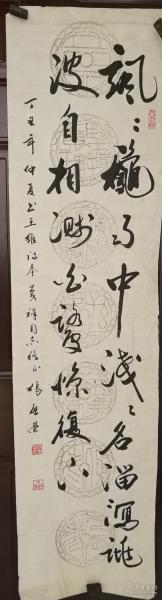 飒飒秋雨中浅浅石溜泻跳
波自相溅白鹭惊复下
丁丑年仲夏书王维诗奉 美祥同志雅正 杨